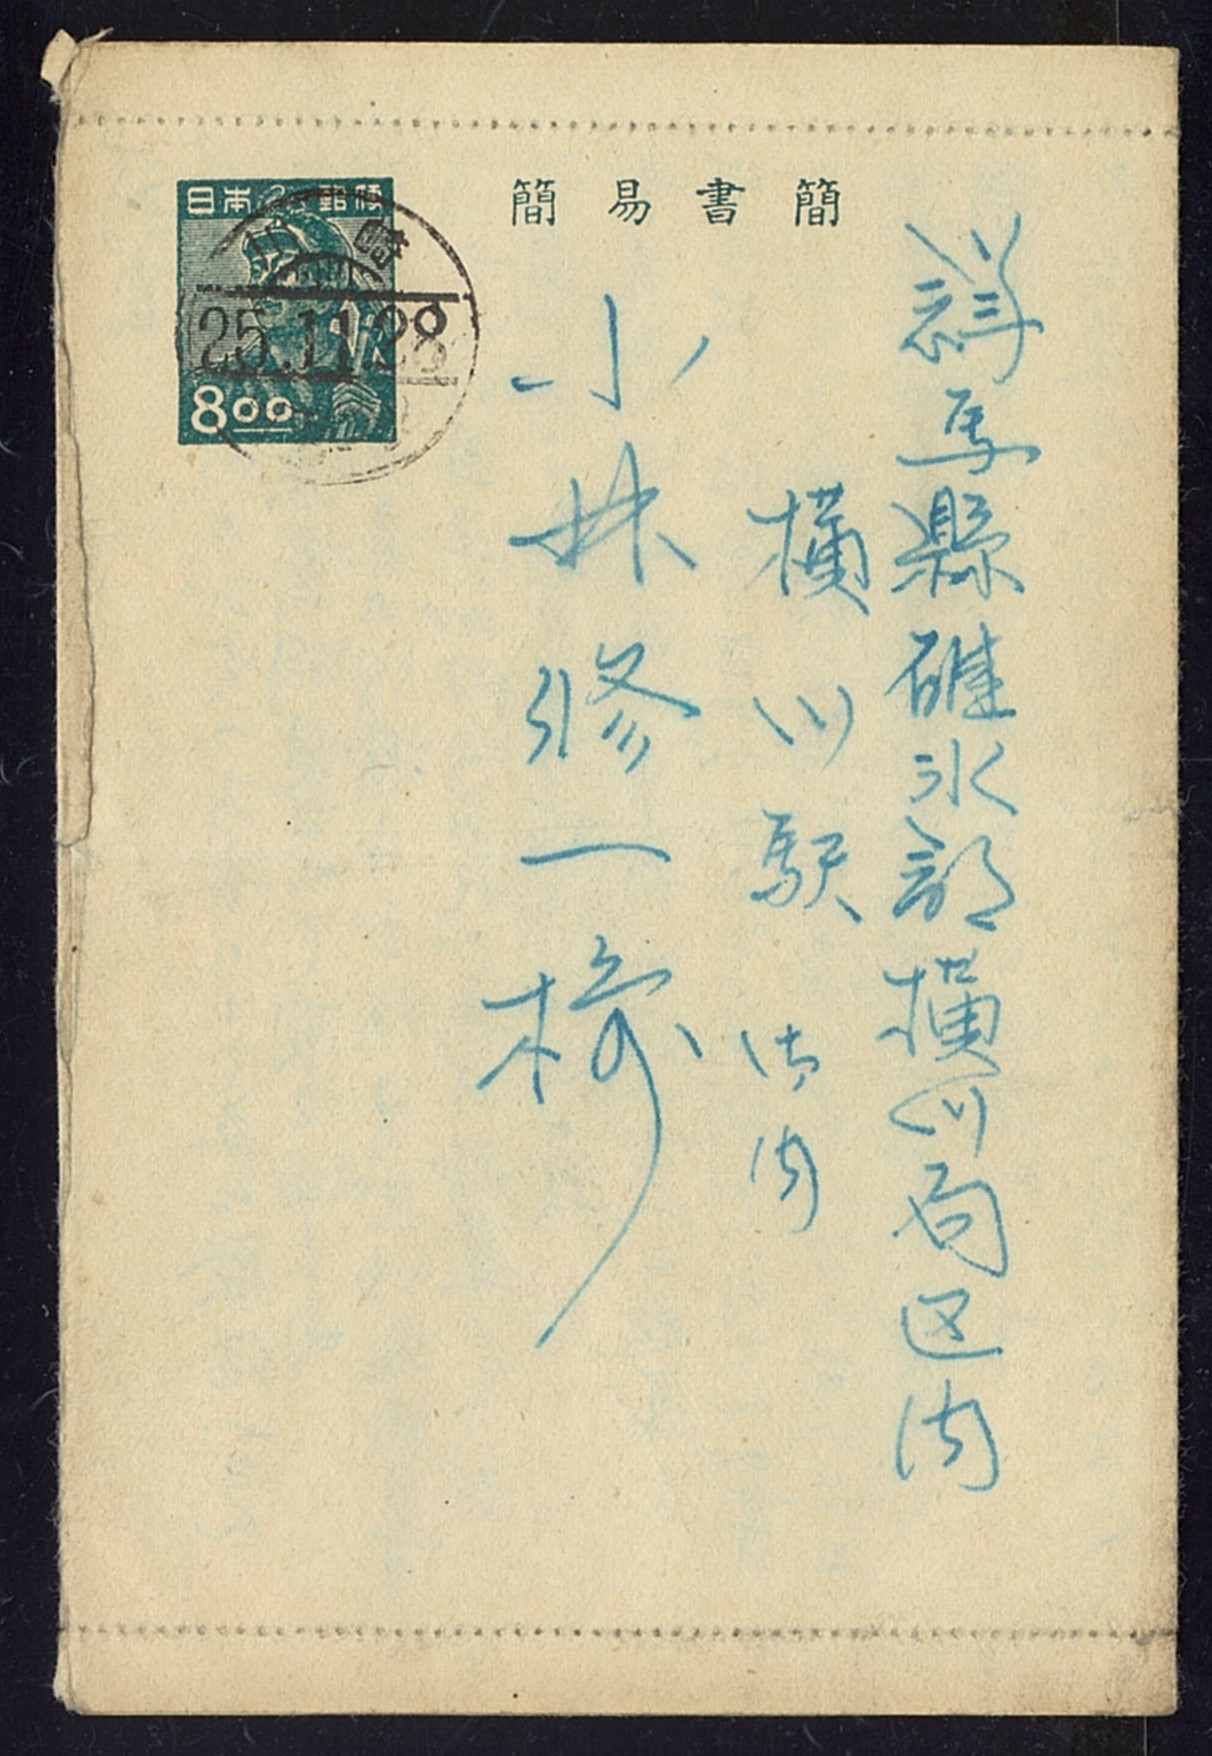 簡易書簡
日本郵便
川崎
25.11.28
8.00
群馬縣碓氷郡横川局区内
横川駅構内
小林修一様